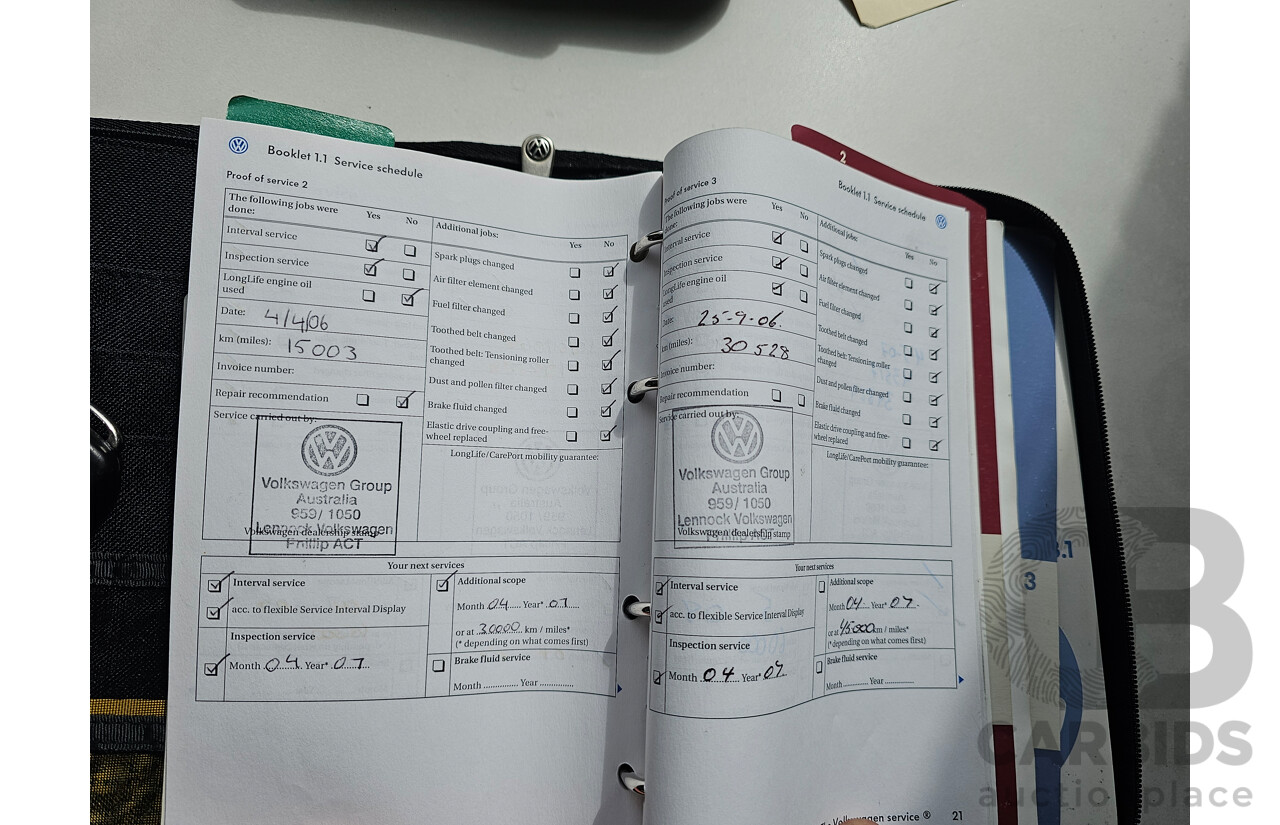 Booklet 1.1 Service schedule
Proof of service 2
The following jobs were done:
Yes No
Interval service
Inspection service
LongLife engine oil used
Date: 4/4/06
km (miles): 15003
Invoice number:
Repair recommendation
Service carried out by:
Volkswagen Group
Australia
959/ 1050
Lennock Volkswagen
Phillip ACT
Volkswagen dealership stamp
Additional jobs:
Yes No
Spark plugs changed
Air filter element changed
Fuel filter changed
Toothed belt changed
Toothed belt: Tensioning roller changed
Dust and pollen filter changed
Brake fluid changed
Elastic drive coupling and free-wheel replaced
LongLife/CarePort mobility guarantee:
Your next services
Interval service
acc. to flexible Service Interval Display
Inspection service
Month 04 Year* 07
Additional scope
Month 04 Year* 07
or at 30000 km / miles*
(* depending on what comes first)
Brake fluid service
Month .............. Year ..............
2
Booklet 1.1 Service schedule
Proof of service 3
The following jobs were done:
Yes No
Interval service
Inspection service
LongLife engine oil used
Date: 25-9-06.
km (miles): 30528
Invoice number:
Repair recommendation
Service carried out by:
Volkswagen Group
Australia
959/ 1050
Lennock Volkswagen
Volkswagen dealership stamp
Additional jobs:
Yes No
Spark plugs changed
Air filter element changed
Fuel filter changed
Toothed belt changed
Toothed belt: Tensioning roller changed
Dust and pollen filter changed
Brake fluid changed
Elastic drive coupling and free-wheel replaced
LongLife/CarePort mobility guarantee:
Your next services
Interval service
acc. to flexible Service Interval Display
Inspection service
Month 04 Year* 07
Additional scope
Month 04 Year* 07.
or at 45000 km / miles*
(* depending on what comes first)
Brake fluid service
Month .............. Year ..............
service ® 21
3
3.1
CARBIDS
auction place